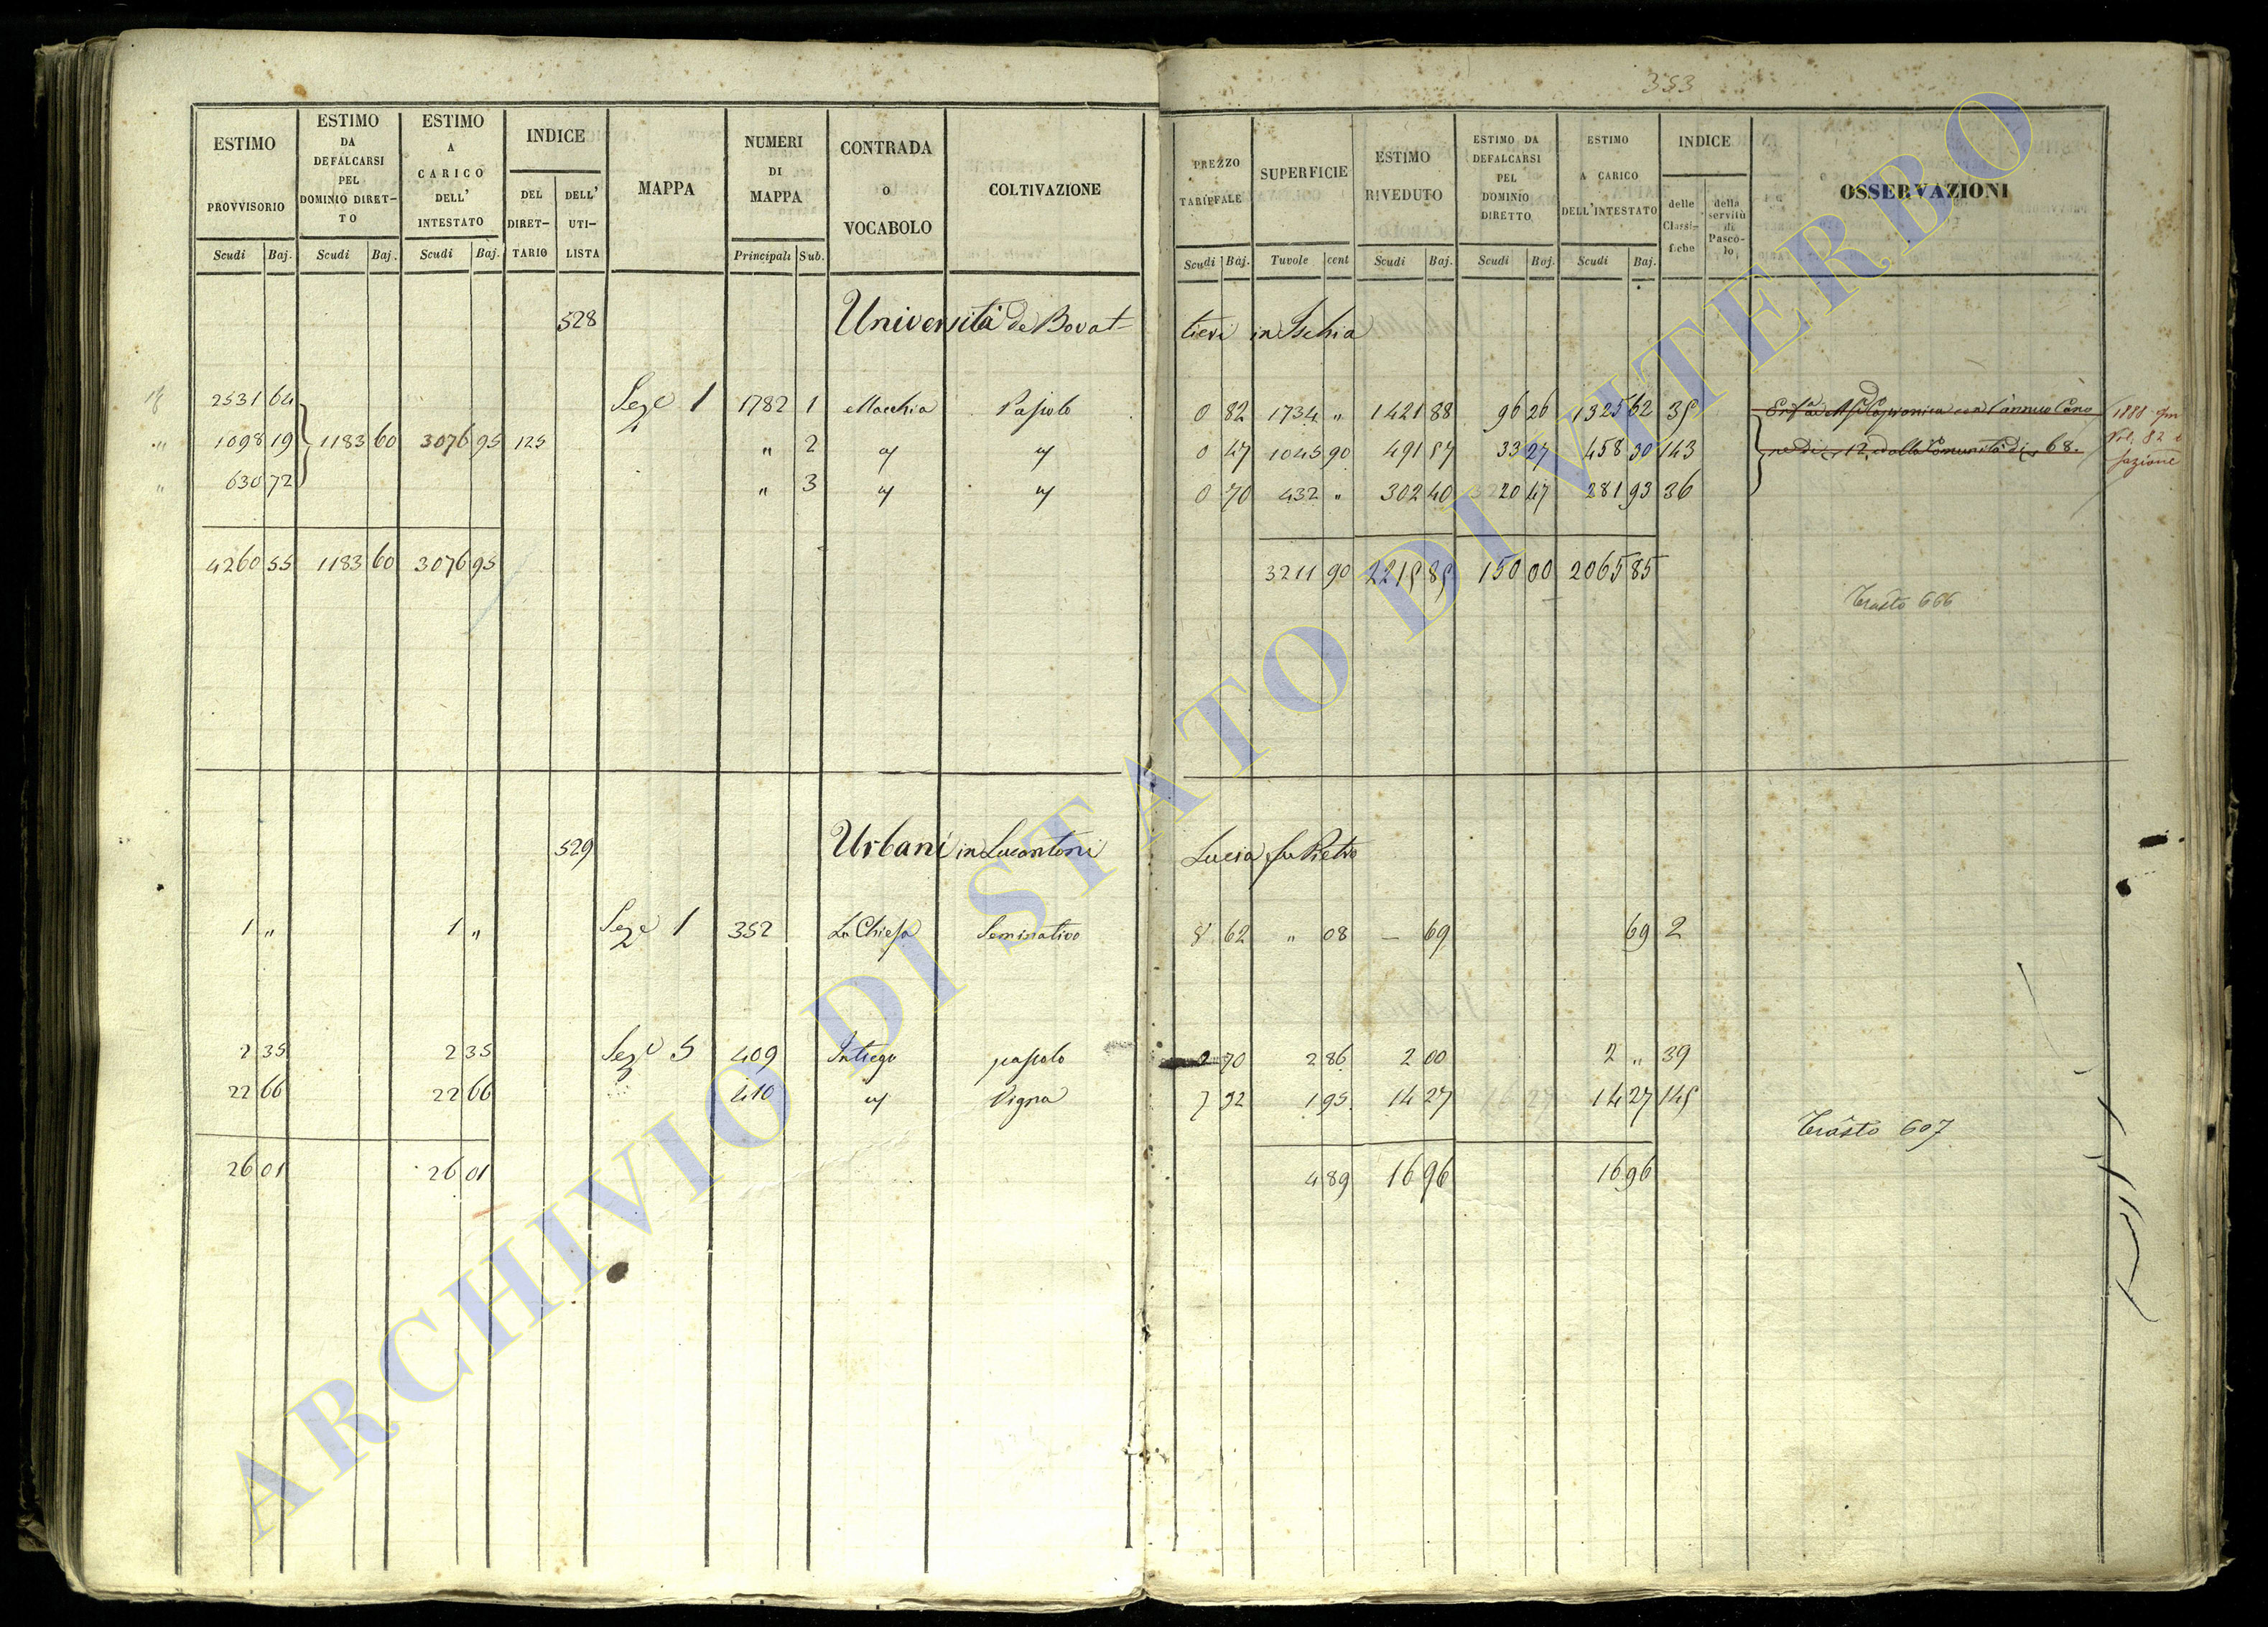 353
ESTIMO PROVVISORIO
ESTIMO DA DEFALCARSI PEL DOMINIO DIRET-TO
ESTIMO A CARICO DELL' INTESTATO
INDICE
DEL DIRET-TARIO
DELL' UTI-LISTA
MAPPA
NUMERI DI MAPPA
CONTRADA o VOCABOLO
COLTIVAZIONE
PREZZO TARIFFALE
SUPERFICIE
ESTIMO RIVEDUTO
ESTIMO DA DEFALCARSI PEL DOMINIO DIRETTO
ESTIMO A CARICO DELL'INTESTATO
INDICE
delle Classi-fiche
della servitù di Pasco-lo
OSSERVAZIONI
Scudi Baj. Scudi Baj. Scudi Baj. Principali Sub. Scudi Baj. Tavole cent Scudi Baj. Scudi Baj. Scudi Baj.
528 Università de Bovat- tieri in Ischia
2531 64 Sez.e 1 1782 1 Macchia Pascolo 0 82 1734 " 1421 88 96 26 1325 62 35
1098 19 1183 60 3076 95 125 " 2 " " 0 47 1045 90 491 57 33 27 458 30 143
630 72 " 3 " " 0 70 432 " 302 40 20 47 281 93 36
4260 55 1183 60 3076 95 3211 90 2215 85 150 00 2065 85
Trasto 666
529 Urbani in Lucantoni Lucia fu Pietro
1 " 1 " Sez.e 1 352 La Chiesa Seminativo 8 62 " 08 — 69 69 2
2 35 2 35 Sez.e 5 409 Intrego pascolo 70 2 86 2 00 2 " 39
22 66 22 66 410 " Vigna 7 32 1 95 14 27 14 27 145
Trasto 607
26 01 26 01 4 89 16 96 16 96
ARCHIVIO DI STATO DI VITERBO